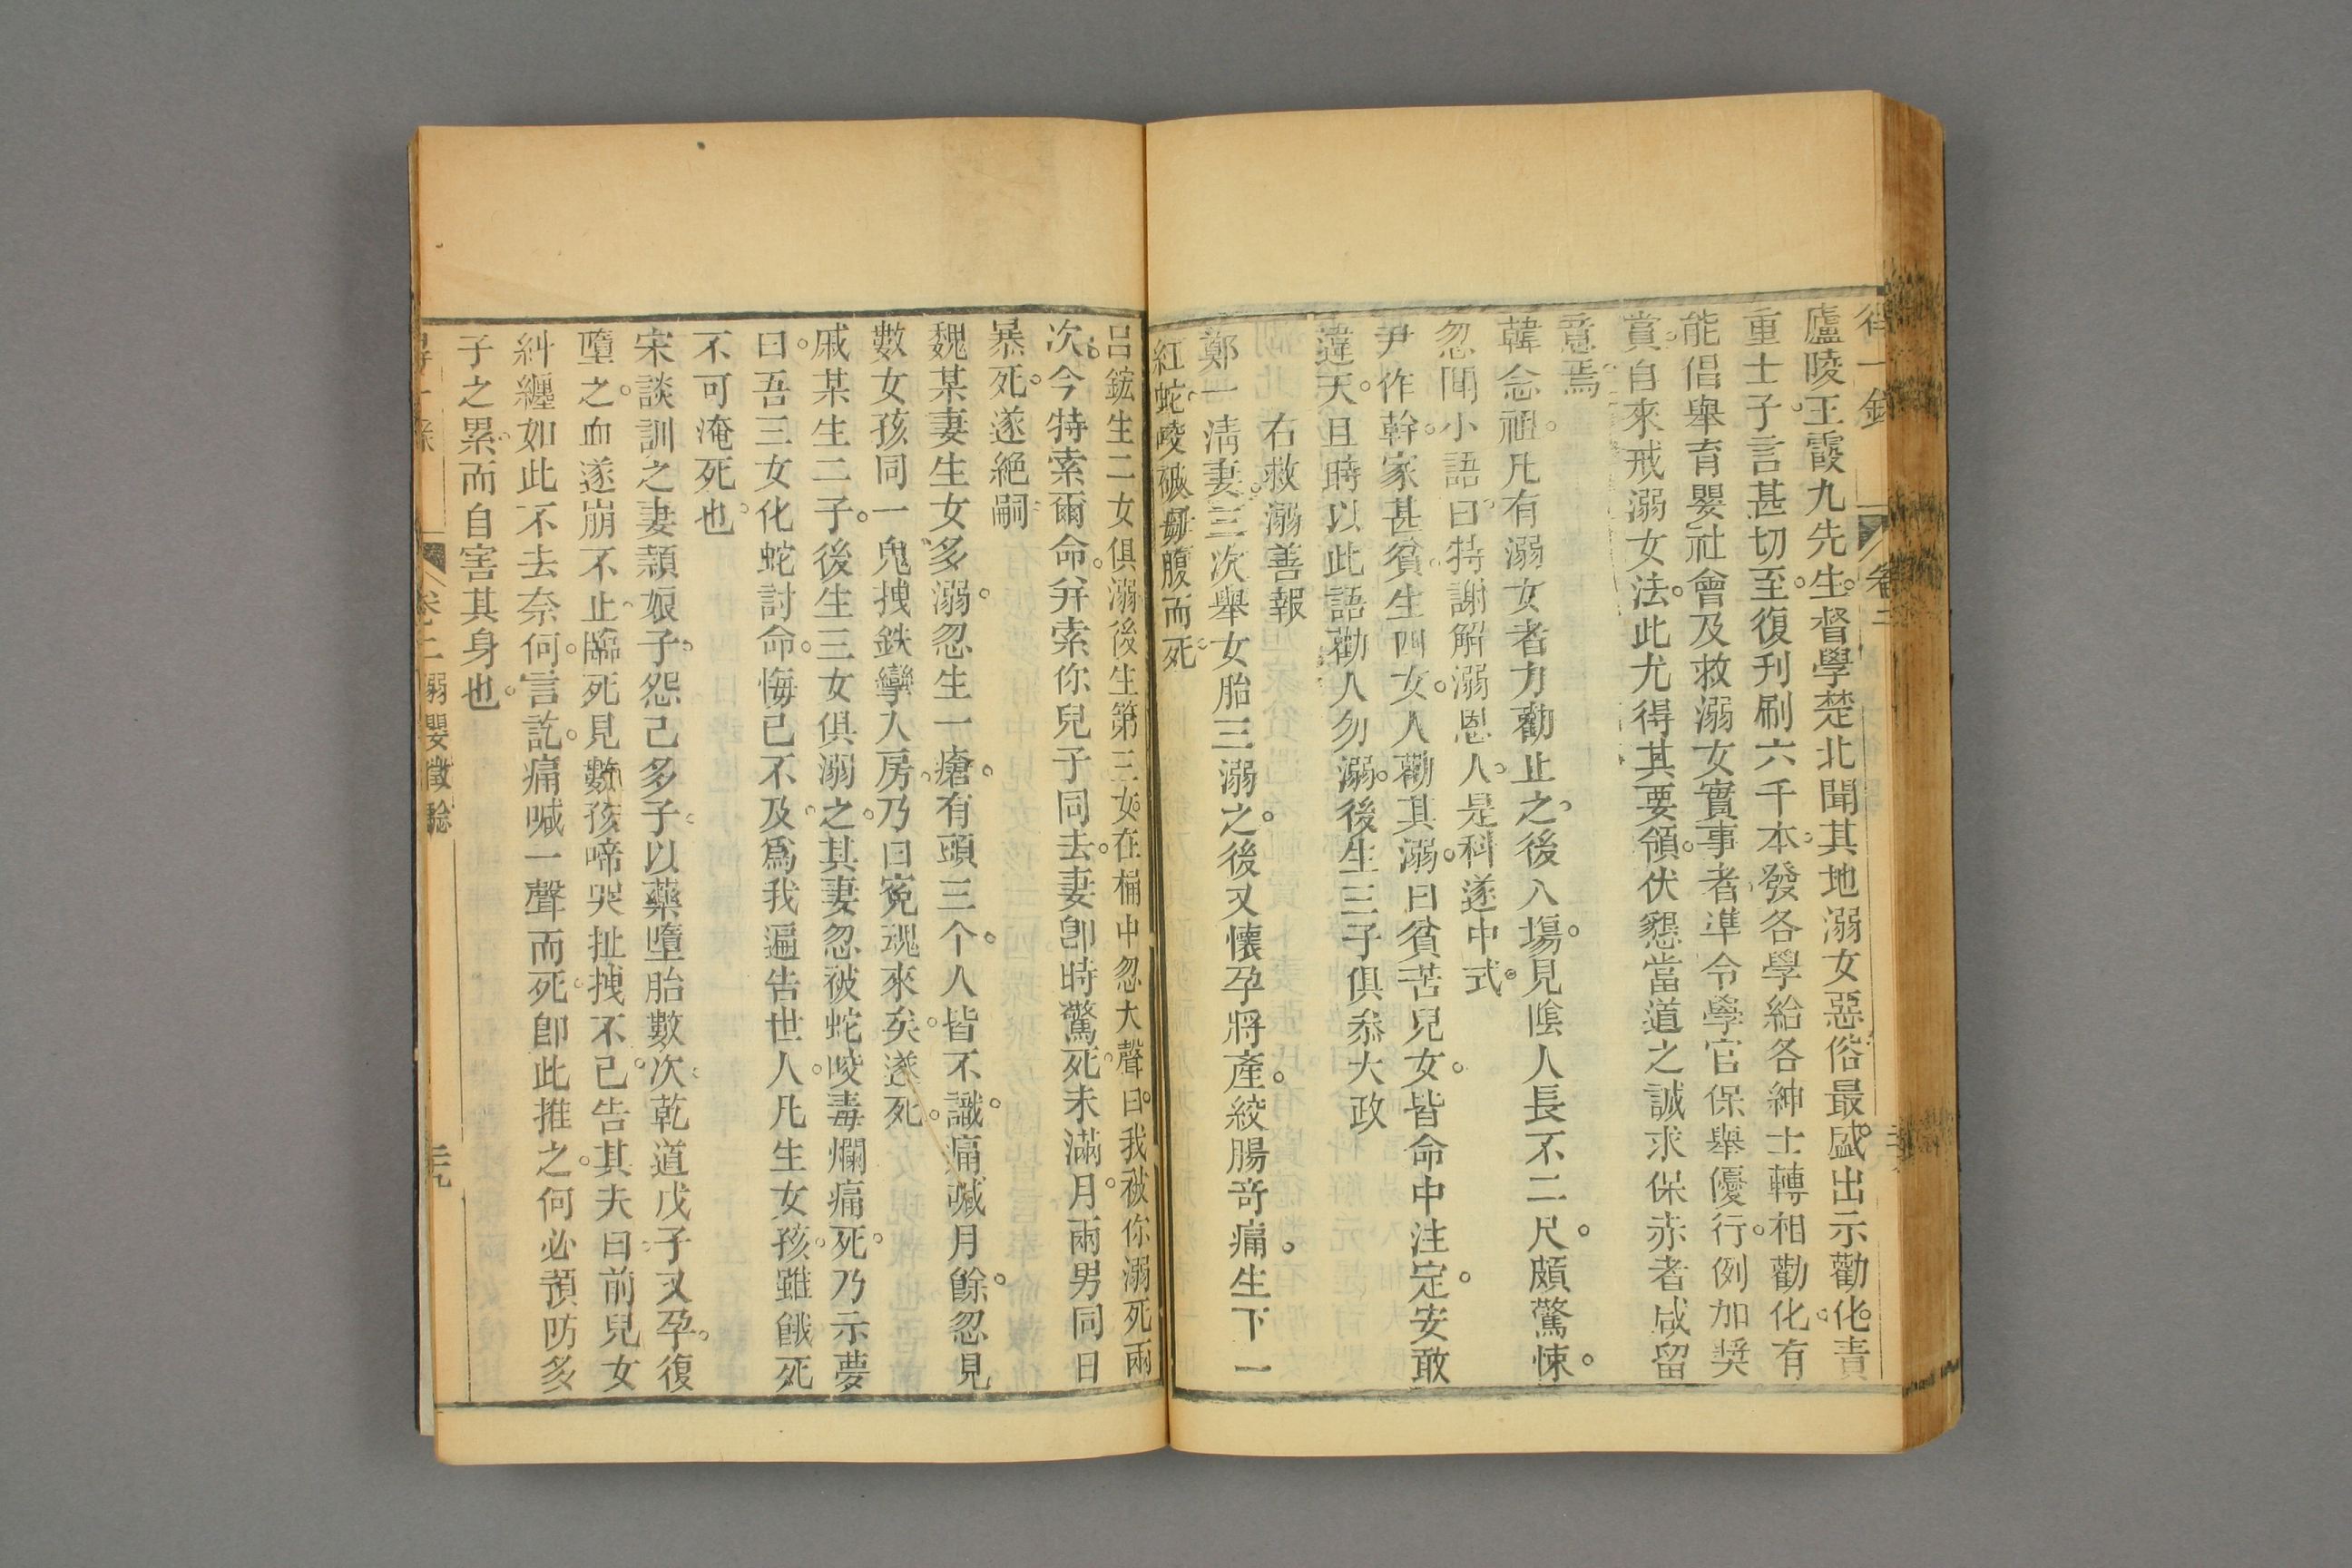 得一錄
卷二
廬陵王霞九先生。督學楚北聞其地溺女惡俗最盛。出示勸化。責
重士子。言甚切至。復刋刷六千本。發各學給各紳士轉相勸化。有
能倡舉育嬰社會及救溺女實事者。準令學官保舉優行。例加奬
賞。自來戒溺女法。此尤得其要領。伏懇當道之誠求保赤者咸留
意焉。
韓念祖。凡有溺女者力勸止之。後入塲。見陰人長不二尺。頗驚悚。
忽聞小語曰。特謝解溺恩人。是科遂中式。
尹作幹。家甚貧。生四女。人勸其溺。曰貧苦兒女。皆命中注定。安敢
違天。且時以此語勸人勿溺。後生三子俱叅大政
右救溺善報
鄭一清妻。三次舉女胎三溺之。後又懷孕將產。絞腸竒痛。生下一
紅蛇。咬破母腹而死。
呂鋐生二女。俱溺後生第三女。在桶中忽大聲曰。我被你溺死兩
次。今特索爾命。幷索你兒子同去。妻卽時驚死。未滿月。兩男同日
暴死。遂絕嗣
魏某妻生女多溺。忽生一瘡。有頭三个。人皆不識。痛喊月餘。忽見
數女孩同一鬼拽鉄彎入房。乃曰寃魂來矣。遂死。
戚某生二子。後生三女俱溺之。其妻忽被蛇咬毒爛痛死。乃示夢
曰。吾三女化蛇討命。悔已不及。爲我遍告世人。凡生女孩。雖餓死
不可淹死也。
宋談訓之妻顈娘子。怨己多子。以藥墮胎數次。乾道戊子又孕。復
墮之。血遂崩不止。臨死見數孩啼哭扯拽不已。告其夫曰。前兒女
糾纒如此。不去奈何。言訖。痛喊一聲而死。卽此推之。何必預防多
子之累。而自害其身也。
得一錄
卷之二溺嬰徵驗
三十九